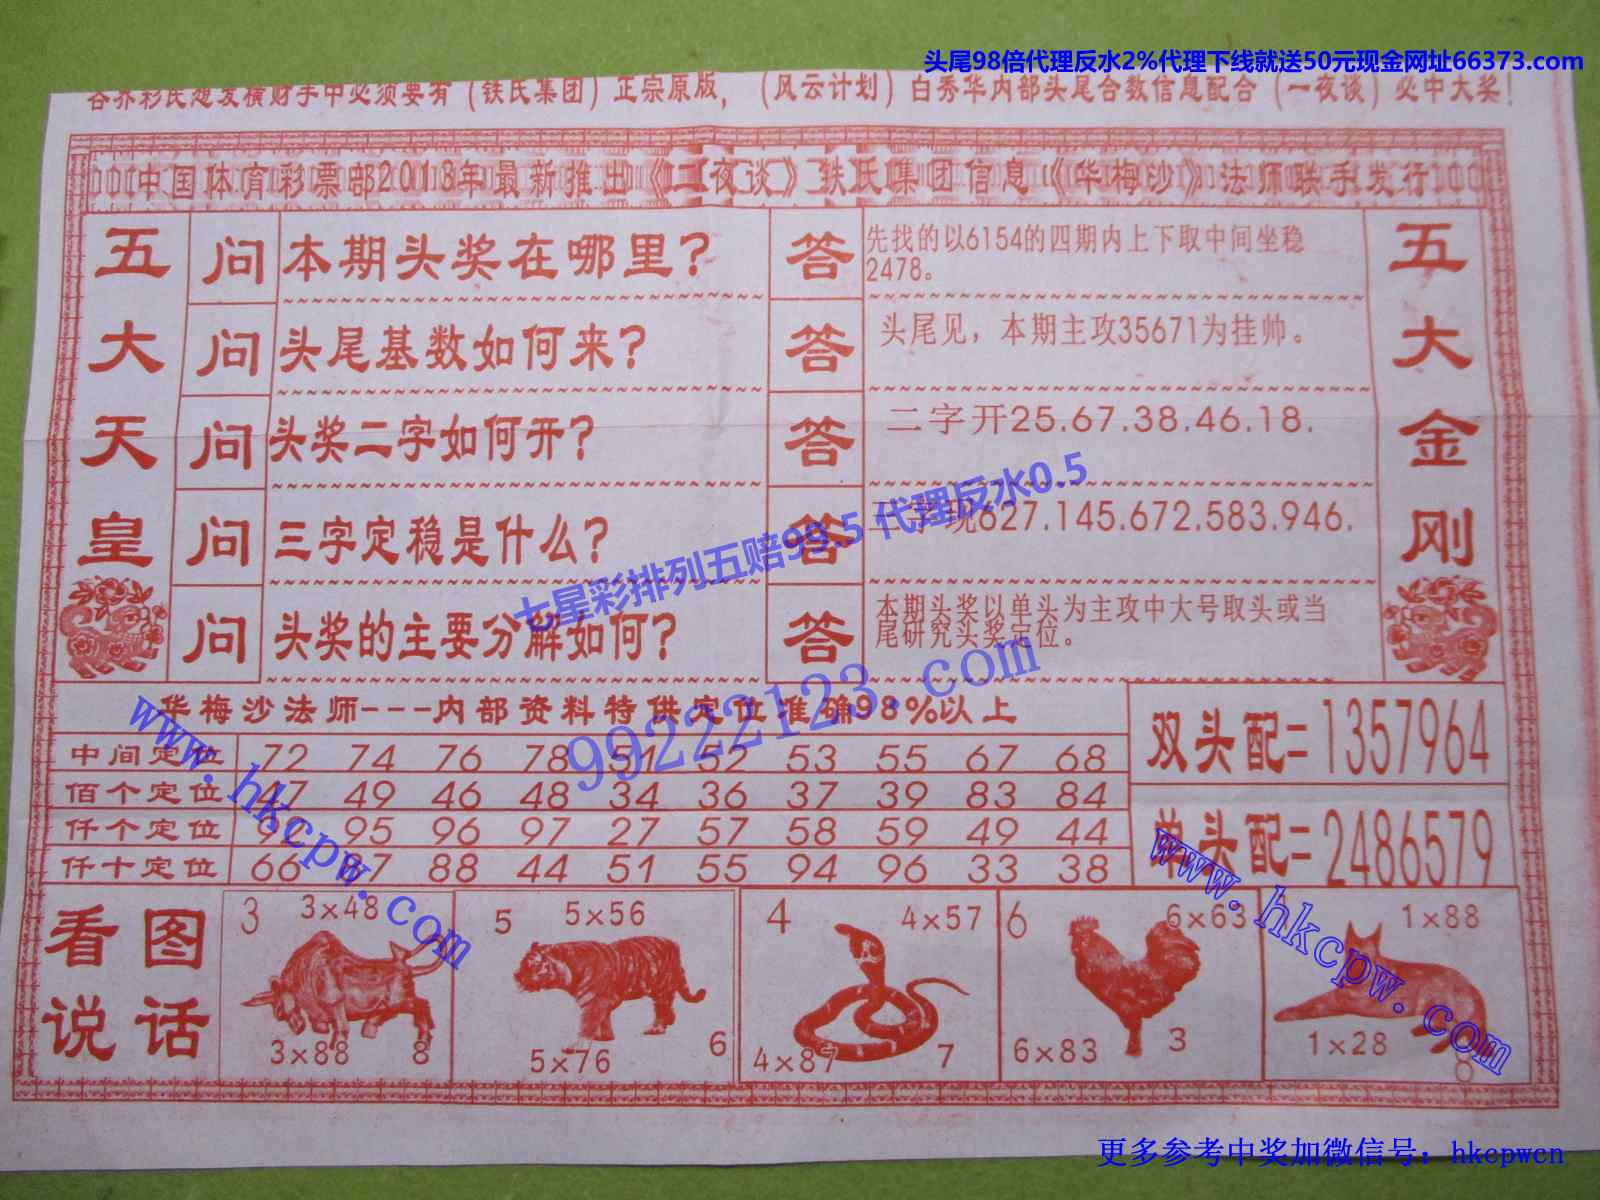 头尾98倍代理反水2%代理下线就送50元现金网址66373.com
各界彩民想发横财手中必须要有（铁氏集团）正宗原版，（风云计划）白秀华内部头尾合数信息配合（一夜谈）必中大奖！
中国体育彩票部2018年最新推出《一夜谈》铁氏集团信息《华梅沙》法师联手发行
五大天皇
问 本期头奖在哪里？ 答 先找的以6154的四期内上下取中间坐稳
2478。
问 头尾基数如何来？ 答 头尾见，本期主攻35671为挂帅。
问 头奖二字如何开？ 答 二字开25.67.38.46.18.
问 三字定稳是什么？ 答 三字现627.145.672.583.946.
问 头奖的主要分解如何？ 答 本期头奖以单头为主攻中大号取头或当
尾研究头奖定位。
五大金刚
七星彩排列五赔99.5 代理反水0.5
99222123.com
华梅沙法师---内部资料特供定位准确98%以上
中间定位 72 74 76 78 51 52 53 55 67 68
佰个定位 47 49 46 48 34 36 37 39 83 84
仟个定位 95 96 97 27 57 58 59 49 44
仟十定位 66 67 88 44 51 55 94 96 33 38
双头配=1357964
单头配=2486579
www.hkcpw.com
www.hkcpw.com
看图
说话
3 3×48
3×88 8
5 5×56
5×76 6
4 4×57
4×87 7
6 6×63
6×83 3
1×88
1×28
更多参考中奖加微信号：hkcpwcn